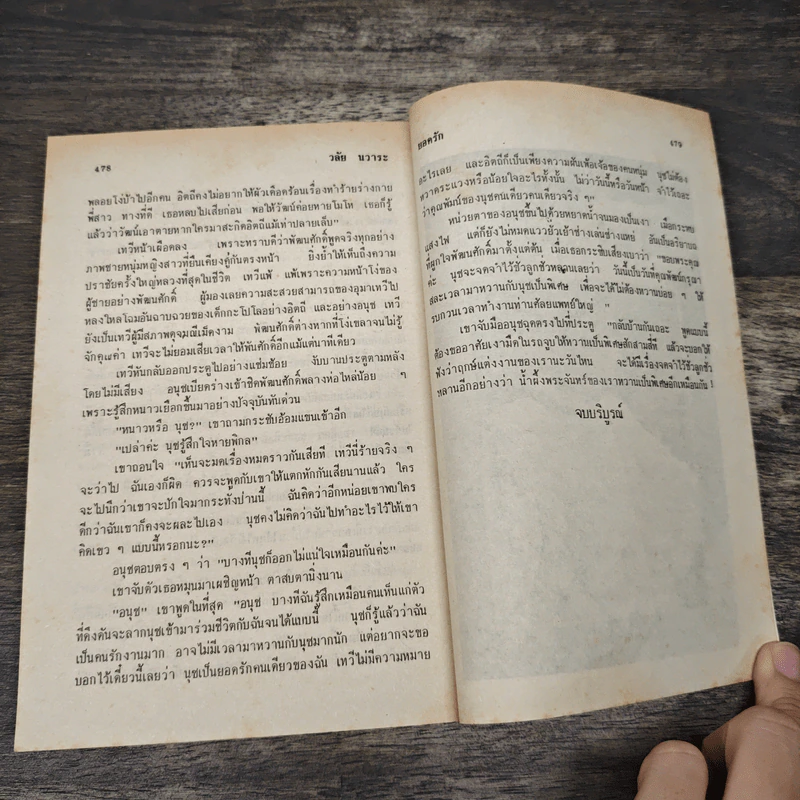 ๔๗๘
วลัย นวาระ
พลอยโง่บ้าไปอีกคน อิตถีคงไม่อยากให้ผัวเดือดร้อนเรื่องทำร้ายร่างกาย
พี่สาว ทางที่ดี เธอหลบไปเสียก่อน พอให้วัฒน์ค่อยหายโมโห เธอก็รู้
แล้วว่าวัฒน์เอาตายหากใครมาสะกิดอิตถีแม้เท่าปลายเล็บ"
เทวีหน้าเผือดลง เพราะทราบดีว่าพัฒนศักดิ์พูดจริงทุกอย่าง
ภาพชายหนุ่มหญิงสาวที่ยืนเคียงคู่กันตรงหน้า ยิ่งย้ำให้เห็นถึงความ
ปราชัยครั้งใหญ่หลวงที่สุดในชีวิต เทวีแพ้ แพ้เพราะความหน้าโง่ของ
ผู้ชายอย่างพัฒนศักดิ์ ผู้มองเลยความสะสวยสามารถของอุมาเทวีไป
หลงใหลโฉมอันฉาบฉวยของเด็กกะโปโลอย่างอิตถี และอย่างอนุช เทวี
ยังเป็นเทวีผู้มีสีภาพดุจมณีเม็ดงาม พัฒนศักดิ์ต่างหากที่โง่เขลาจนไม่รู้
จักคุณค่า เทวีจะไม่ยอมเสียเวลาให้พัฒนศักดิ์อีกแม้แต่นาทีเดียว
เทวีหันกลับออกประตูไปอย่างแช่มช้อย งับบานประตูตามหลัง
โดยไม่มีเสียง อนุชเบียดร่างเข้าชิดพัฒนศักดิ์พลางห่อไหล่น้อย ๆ
เพราะรู้สึกหนาวเยือกขึ้นมาอย่างปัจจุบันทันด่วน
"หนาวหรือ นุช?" เขาถามกระชับอ้อมแขนเข้าอีก
"เปล่าค่ะ นุชรู้สึกใจหายพิกล"
เขาถอนใจ "เห็นจะหมดเรื่องหมดราวกันเสียที เทวีนี่ร้ายจริง ๆ
จะว่าไป ฉันเองก็ผิด ควรจะพูดกับเขาให้แตกหักกันเสียนานแล้ว ใคร
จะไปนึกว่าเขาจะปักใจมากระทั่งป่านนี้ ฉันคิดว่าอีกหน่อยเขาพบใคร
ดีกว่าฉันเขาก็คงจะผละไปเอง นุชคงไม่คิดว่าฉันไปทำอะไรไว้ให้เขา
คิดเขว ๆ แบบนี้หรอกนะ?"
อนุชตอบตรง ๆ ว่า "บางทีนุชก็ออกไม่แน่ใจเหมือนกันค่ะ"
เขาจับตัวเธอหมุนมาเผชิญหน้า ตาสบตานิ่งนาน
"อนุช" เขาพูดในที่สุด "อนุช บางทีฉันรู้สึกเหมือนคนเห็นแก่ตัว
ที่ดึงดันจะลากนุชเข้ามาร่วมชีวิตกับฉันจนได้แบบนี้ นุชก็รู้แล้วว่าฉัน
เป็นคนรักงานมาก อาจไม่มีเวลามาหวานกับนุชมากนัก แต่อยากจะขอ
บอกไว้เดี๋ยวนี้เลยว่า นุชเป็นยอดรักคนเดียวของฉัน เทวีไม่มีความหมาย
ยอดรัก
๔๗๙
อะไรเลย และอิตถีก็เป็นเพียงความฝันเพ้อเจ้อของคนหนุ่ม นุชไม่ต้อง
หวาดระแวงหรือน้อยใจอะไรทั้งนั้น ไม่ว่าวันนี้หรือวันหน้า จำไว้เถอะ
ว่าคุณพัฒน์ของนุชคนเดียวคนเดียวจริง ๆ"
หน่วยตาของอนุชชื้นไปด้วยหยาดน้ำจนมองเป็นเงา เมื่อกระทบ
แสงไฟ แต่ก็ยังไม่หมดแววยั่วเย้าช่างเล่นช่างแหย่ อันเป็นอริยาบถ
ที่ผูกใจพัฒนศักดิ์มาตั้งแต่ต้น เมื่อเธอกระซิบเสียงเบาว่า "ขอบพระคุณ
ค่ะ นุชจะจดจำไว้ชั่วลูกชั่วหลานเลยว่า วันนี้เป็นวันที่คุณพัฒน์กรุณา
สละเวลามาหวานกับนุชเป็นพิเศษ เพื่อจะได้ไม่ต้องหวานบ่อย ๆ ให้
รบกวนเวลาทำงานท่านศัลยแพทย์ใหญ่"
เขาจับมืออนุชฉุดตรงไปที่ประตู "กลับบ้านกันเถอะ พูดแบบนี้
ต้องขออาศัยเงามืดในรถจูบให้หวานเป็นพิเศษสักสามสี่ที แล้วจะบอกให้
ฟังว่าฤกษ์แต่งงานของเรานะวันไหน จะได้มีเรื่องจดจำไว้ชั่วลูกชั่ว
หลานอีกอย่างว่า น้ำผึ้งพระจันทร์ของเราหวานเป็นพิเศษอีกเหมือนกัน!
จบบริบูรณ์